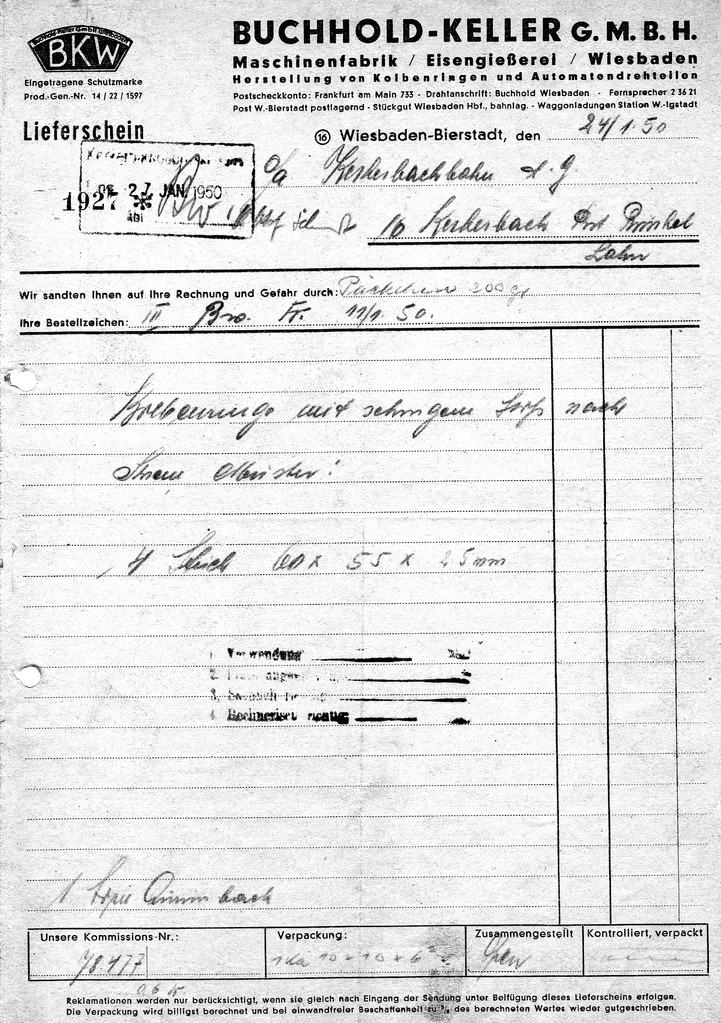 Buchhold-Keller GmbH Wiesbaden
BKW
Eingetragene Schutzmarke
Prod.-Gen.-Nr. 14 / 22 / 1597
BUCHHOLD-KELLER G. M. B. H.
Maschinenfabrik / Eisengießerei / Wiesbaden
Herstellung von Kolbenringen und Automatendrehteilen
Postscheckkonto: Frankfurt am Main 733 - Drahtanschrift: Buchhold Wiesbaden - Fernsprecher 2 36 21
Post W.-Bierstadt postlagernd - Stückgut Wiesbaden Hbf., bahnlag. - Waggonladungen Station W.-Igstadt
Lieferschein
16 Wiesbaden-Bierstadt, den 24/1.50
27. JAN. 1950
1927
Kerkerbachbahn A. G.
16 Kerkerbach Post Runkel
Lahn
Wir sandten Ihnen auf Ihre Rechnung und Gefahr durch: Päckchen 200 g
Ihre Bestellzeichen: III Bro. Fr. 11/1. 50.
Kolbenringe mit schrägem Stoß nach
Ihrem Muster:
4 Stück 60 x 55 x 2 5 mm
1. Verwendung
2.
3.
4. Rechnerisch richtig
1 Kopie
Unsere Kommissions-Nr.:
78.477
Verpackung:
Zusammengestellt
Kontrolliert, verpackt
Reklamationen werden nur berücksichtigt, wenn sie gleich nach Eingang der Sendung unter Beifügung dieses Lieferscheins erfolgen.
Die Verpackung wird billigst berechnet und bei einwandfreier Beschaffenheit zu ⅔ des berechneten Wertes wieder gutgeschrieben.